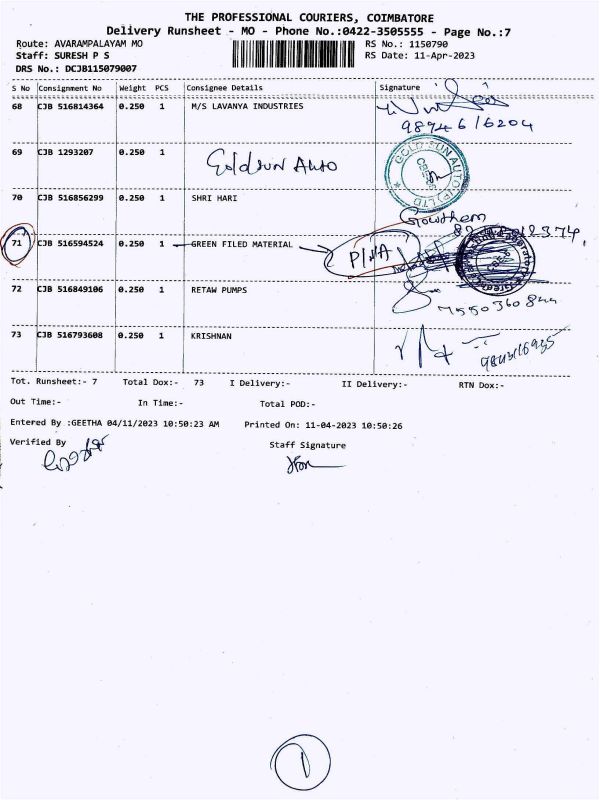 THE PROFESSIONAL COURIERS, COIMBATORE
Delivery Runsheet - MO - Phone No.:0422-3505555 - Page No.:7
Route: AVARAMPALAYAM MO RS No.: 1150790
Staff: SURESH P S RS Date: 11-Apr-2023
DRS No.: DCJB115079007
S No Consignment No Weight PCS Consignee Details Signature
68 CJB 516814364 0.250 1 M/S LAVANYA INDUSTRIES
9894616204
69 CJB 1293207 0.250 1 Goldsun Auto
GOLD SUN AUTO (P) LTD
70 CJB 516856299 0.250 1 SHRI HARI
Gowtham
71 CJB 516594524 0.250 1 GREEN FILED MATERIAL P/NA
72 CJB 516849106 0.250 1 RETAW PUMPS
73 CJB 516793608 0.250 1 KRISHNAN
Tot. Runsheet:- 7 Total Dox:- 73 I Delivery:- II Delivery:- RTN Dox:-
Out Time:- In Time:- Total POD:-
Entered By :GEETHA 04/11/2023 10:50:23 AM Printed On: 11-04-2023 10:50:26
Verified By Staff Signature
1